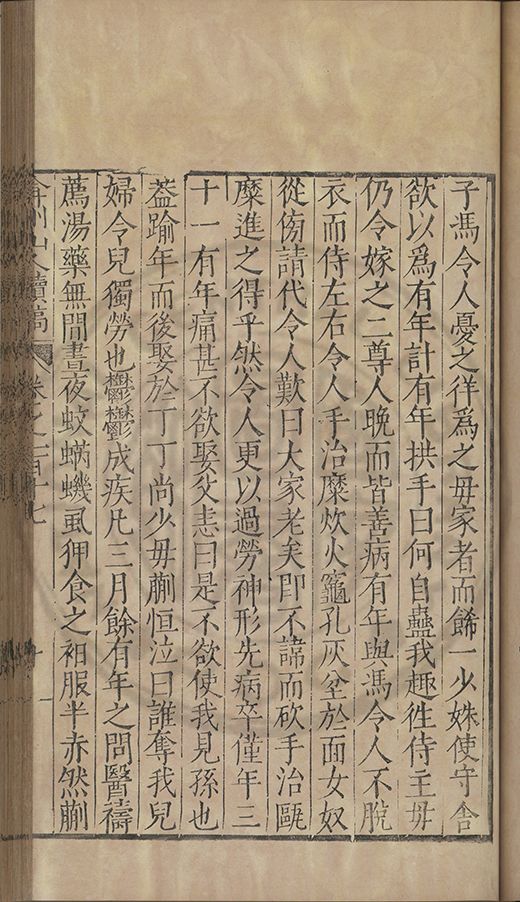 子馮令人憂之徉爲之毋家者而餙一少姝使守舍
欲以爲有年計有年拱手曰何自蠱我趣徃侍主毋
仍令嫁之二尊人晚而皆善病有年與馮令人不脫
衣而侍左右令人手治糜炊火竈孔灰坌於面女奴
從傍請代令人歎曰大家老矣即不諱而砍手治甌
糜進之得乎然令人更以過勞神形先病卒僅年三
十一有年痛甚不欲娶父恚曰是不欲使我見孫也
葢踰年而後娶於丁丁尚少毋蒯恒泣曰誰奪我兒
婦令兒獨勞也鬱鬱成疾凡三月餘有年之問醫禱
薦湯藥無間晝夜蚊蜹蟣虱狎食之衵服半赤然蒯
弇州山人續稿 卷之一百十七